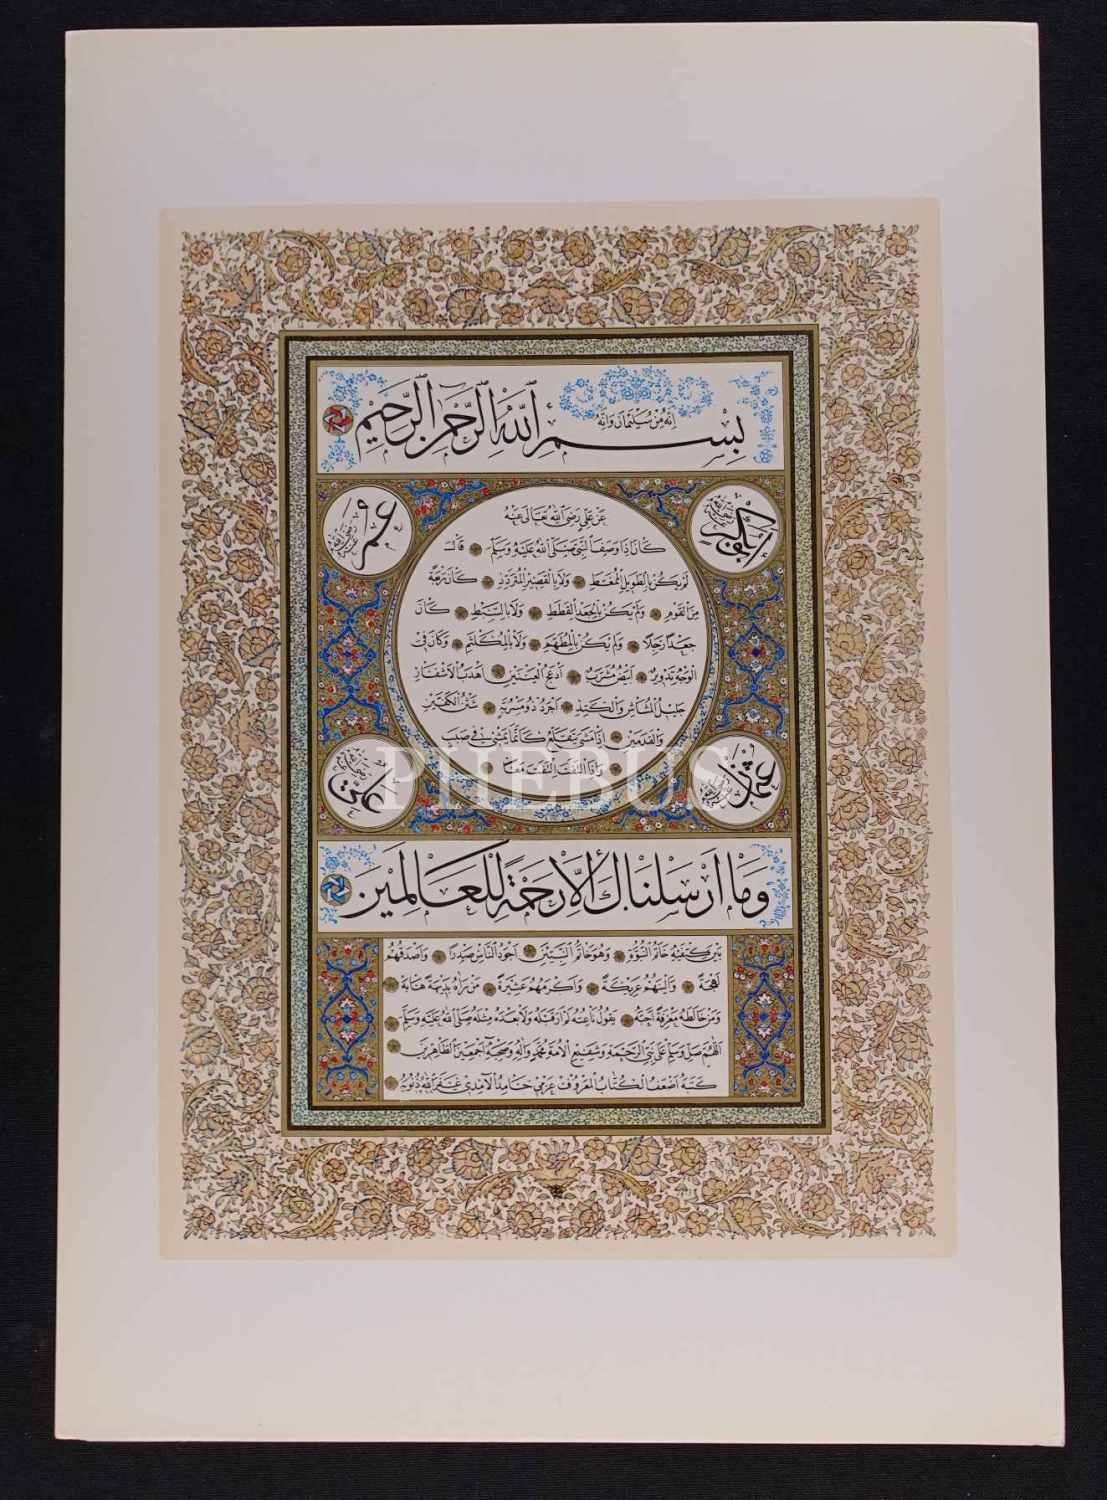 إنه من سليمان وإنه
بسم الله الرحمن الرحيم
أبو بكر رضي الله عنه
عمر رضي الله عنه
عن علي رضي الله تعالى عنه
كان إذا وصف النبي صلى الله عليه وسلم قال
لم يكن بالطويل الممغط ولا بالقصير المتردد كان ربعة
من القوم ولم يكن بالجعد القطط ولا بالسبط كان
جعدا رجلا ولم يكن بالمطهم ولا بالمكلثم وكان في
الوجه تدوير أبيض مشرب أدعج العينين أهدب الأشفار
جليل المشاش والكتد أجرد ذو مسربة شثن الكفين
والقدمين إذا مشى تقلع كأنما يمشي في صبب
وإذا التفت التفت معا
عثمان رضي الله عنه
علي رضي الله عنه
PHEBUS
وما أرسلناك إلا رحمة للعالمين
بين كتفيه خاتم النبوة وهو خاتم النبيين أجود الناس صدرا وأصدقهم
لهجة وألينهم عريكة وأكرمهم عشيرة من رآه بديهة هابه
ومن خالطه معرفة أحبه يقول ناعته لم أر قبله ولا بعده مثله صلى الله عليه وسلم
اللهم صل وسلم على نبي الرحمة وشفيع الأمة محمد وآله وصحبه أجمعين الطاهرين
كتبه أضعف الكتاب المعروف حامد الآمدي غفر الله ذنوبه